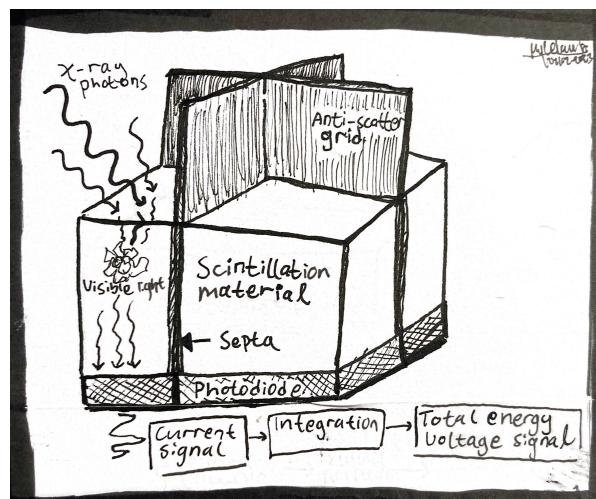 X-ray
photons
Anti-scatter
grid
Visible light
Scintillation
material
Septa
Photodiode
Current
signal
Integration
Total energy
voltage signal